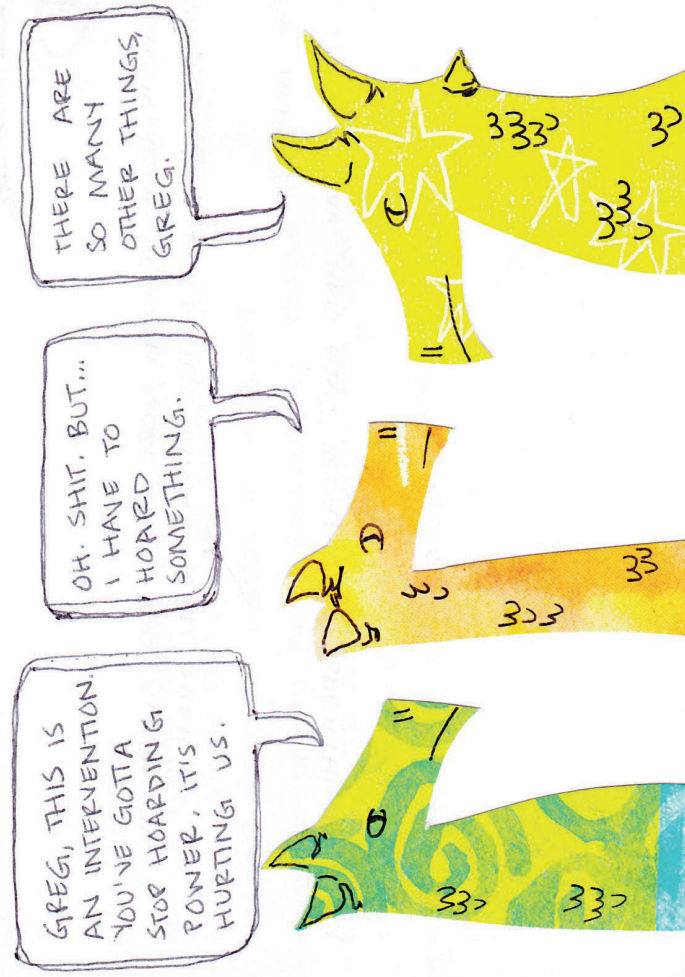 GREG, THIS IS
AN INTERVENTION.
YOU'VE GOTTA
STOP HOARDING
POWER. IT'S
HURTING US.
OH. SHIT. BUT...
I HAVE TO
HOARD
SOMETHING.
THERE ARE
SO MANY
OTHER THINGS,
GREG.